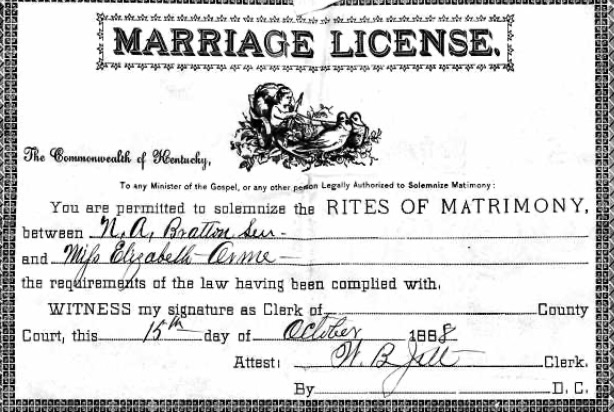 MARRIAGE LICENSE.
The Commonwealth of Kentucky,
To any Minister of the Gospel, or any other person Legally Authorized to Solemnize Matimony:
You are permitted to solemnize the RITES OF MATRIMONY,
between N. A. Bratton Sen -
and Miss Elizabeth Orme
the requirements of the law having been complied with.
WITNESS my signature as Clerk of County
Court, this 15th day of October 1888
Attest: W. B. Clerk.
By D. C.